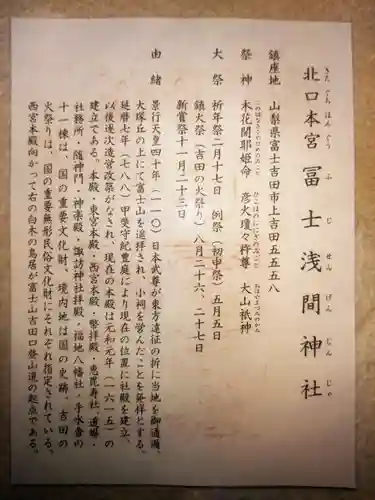 北口本宮冨士浅間神社
きたぐちほんぐうふじせんげんじんじゃ
鎮座地 山梨県富士吉田市上吉田五五五八
祭神 木花開耶姫命 彦火瓊々杵尊 大山祇神
このはなさくやひめのみこと ひこほのににぎのみこと おほやまづみのかみ
大祭 祈年祭二月十七日 例祭(初申祭)五月五日
鎮火祭(吉田の火祭り)八月二十六、二十七日
新嘗祭十一月二十三日
由緒 景行天皇四十年(一一〇)日本武尊が東方遠征の折に当地を御通過、
大塚丘の上にて富士山を遥拝され、小祠を営んだことを発祥とする。
延暦七年(七八八)甲斐守紀豊庭により現在の位置に社殿を建立、
以後逐次造営改築がなされ、現在の本殿は元和元年(一六一五)の
建立である。本殿・東宮本殿・西宮本殿・幣拝殿・恵毘寿社・透塀・
社務所・随神門・神楽殿・諏訪神社拝殿・福地八幡社・手水舎の
十一棟は、国の重要文化財、境内地は国の史跡、吉田の
火祭りは、国の重要無形民俗文化財にそれぞれ指定されている。
西宮本殿向かって右の白木の鳥居が富士山吉田口登山道の起点である。